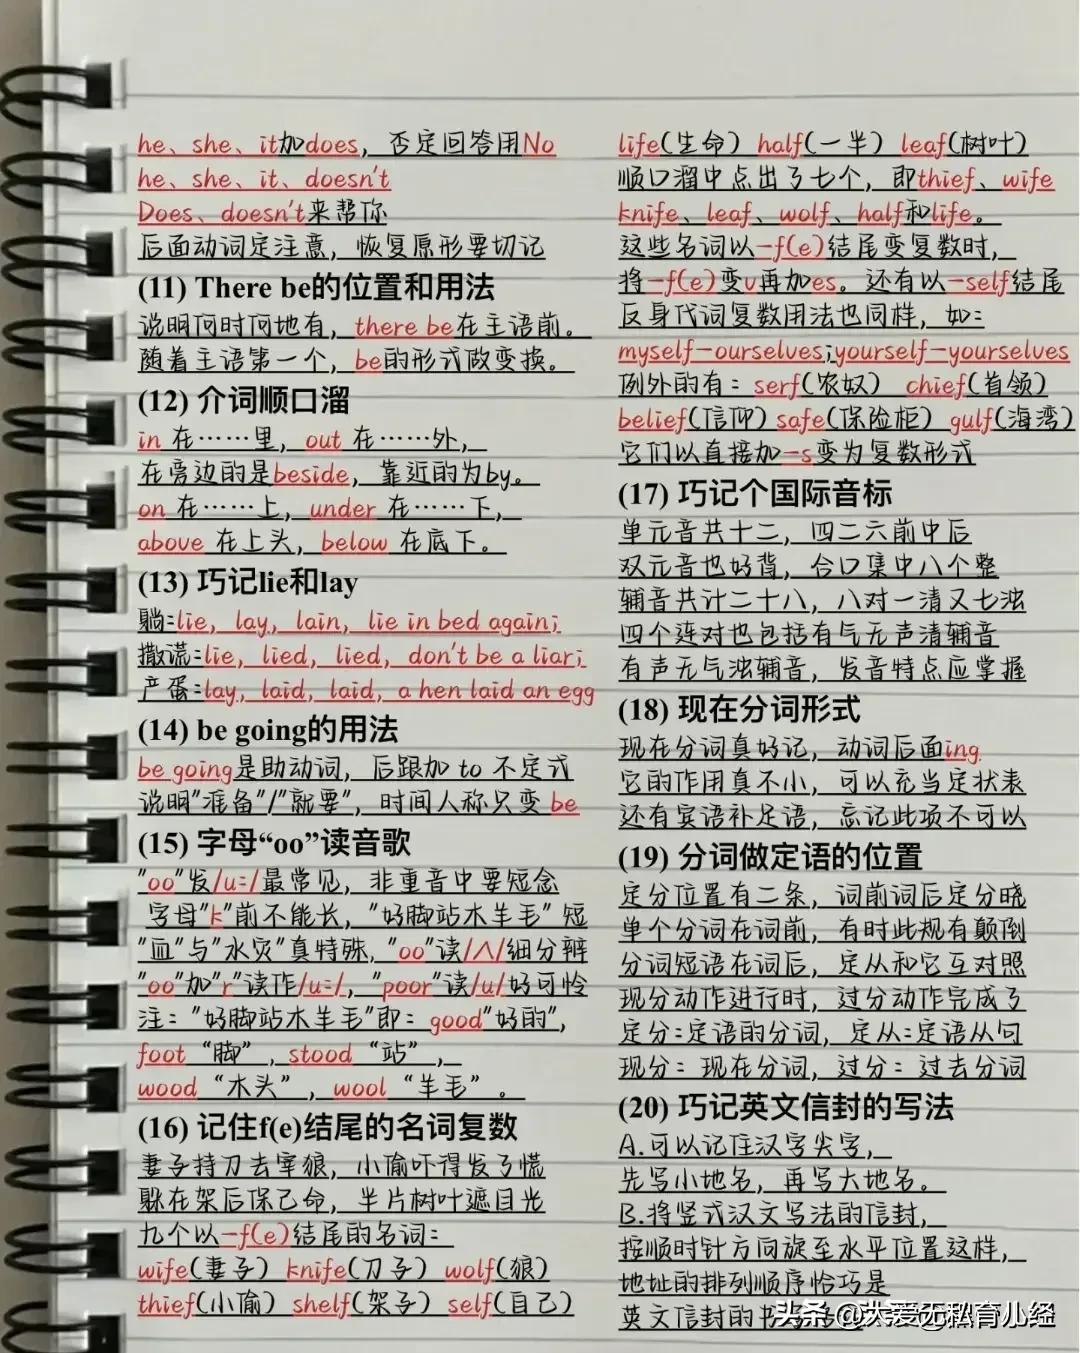 he、she、it加does，否定回答用No
he、she、it、doesn't
Does、doesn't来帮你
后面动词定注意，恢复原形要切记
(11) There be的位置和用法
说明何时何地有，there be在主语前。
随着主语第一个，be的形式做变换。
(12) 介词顺口溜
in 在……里，out 在……外，
在旁边的是beside，靠近的为by。
on 在……上，under 在……下，
above 在上头，below 在底下。
(13) 巧记lie和lay
躺:lie，lay，lain，lie in bed again;
撒谎:lie，lied，lied，don't be a liar;
产蛋:lay，laid，laid，a hen laid an egg
(14) be going的用法
be going是助动词，后跟加 to 不定式
说明"准备"/"就要"，时间人称只变 be
(15) 字母“oo”读音歌
"oo"发/u:/最常见，非重音中要短念
字母"k"前不能长，"好脚站木羊毛" 短
"血"与"水灾"真特殊，"oo"读/∧/细分辨
"oo"加"r"读作/u:/，"poor"读/u/好可怜
注："好脚站木羊毛"即：good"好的"，
foot “脚”，stood “站”，
wood “木头”，wool “羊毛”。
(16) 记住f(e)结尾的名词复数
妻子持刀去宰狼，小偷吓得发了慌
躲在架后保己命，半片树叶遮目光
九个以—f(e)结尾的名词：
wife(妻子) knife(刀子) wolf(狼)
thief(小偷) shelf(架子) self(自己)
life(生命) half(一半) leaf(树叶)
顺口溜中点出了七个，即thief、wife
knife、leaf、wolf、half和life。
这些名词以—f(e)结尾变复数时，
将—f(e)变v再加es。还有以—self结尾
反身代词复数用法也同样，如：
myself—ourselves;yourself—yourselves
例外的有：serf(农奴) chief(首领)
belief(信仰) safe(保险柜) gulf(海湾)
它们以直接加—s变为复数形式
(17) 巧记个国际音标
单元音共十二，四二六前中后
双元音也好背，合口集中八个整
辅音共计二十八，八对一清又七浊
四个连对也包括有气无声清辅音
有声无气浊辅音，发音特点应掌握
(18) 现在分词形式
现在分词真好记，动词后面ing
它的作用真不小，可以充当定状表
还有宾语补足语，忘记此项不可以
(19) 分词做定语的位置
定分位置有二条，词前词后定分晓
单个分词在词前，有时此规有颠倒
分词短语在词后，定从和它互对照
现分动作进行时，过分动作完成了
定分:定语的分词，定从:定语从句
现分：现在分词，过分：过去分词
(20) 巧记英文信封的写法
A.可以记住汉字尖字，
先写小地名，再写大地名。
B.将竖式汉文写法的信封，
按顺时针方向旋至水平位置这样，
地址的排列顺序恰巧是
英文信封的书
头条 @大爱无私育儿经